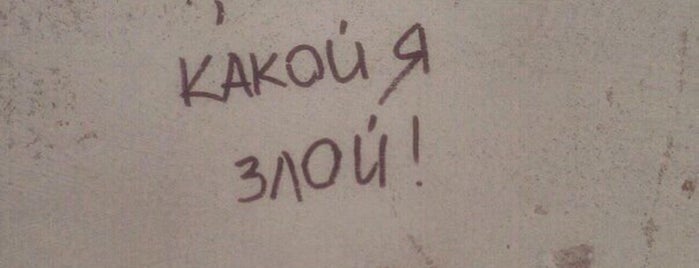 КАКОЙ Я
ЗЛОЙ!